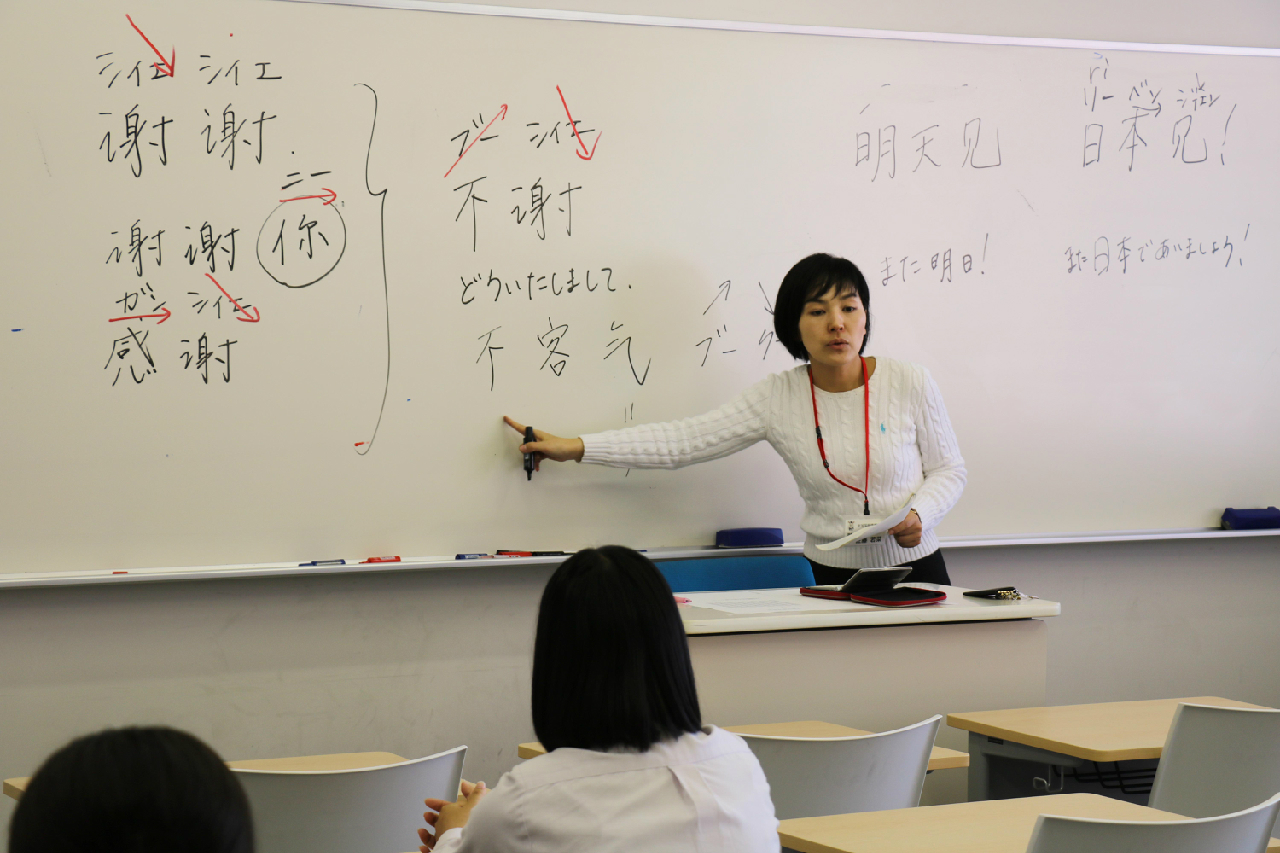 シィエ シィエ
谢 谢.
ニー
谢 谢 你
ガン シィエ
感 谢
ブー シィエ
不 谢
どういたしまして.
不 客 气
ブー ク
明天见
また明日!
ri
リー ベン ジィエン
日本见!
また日本であいましょう!